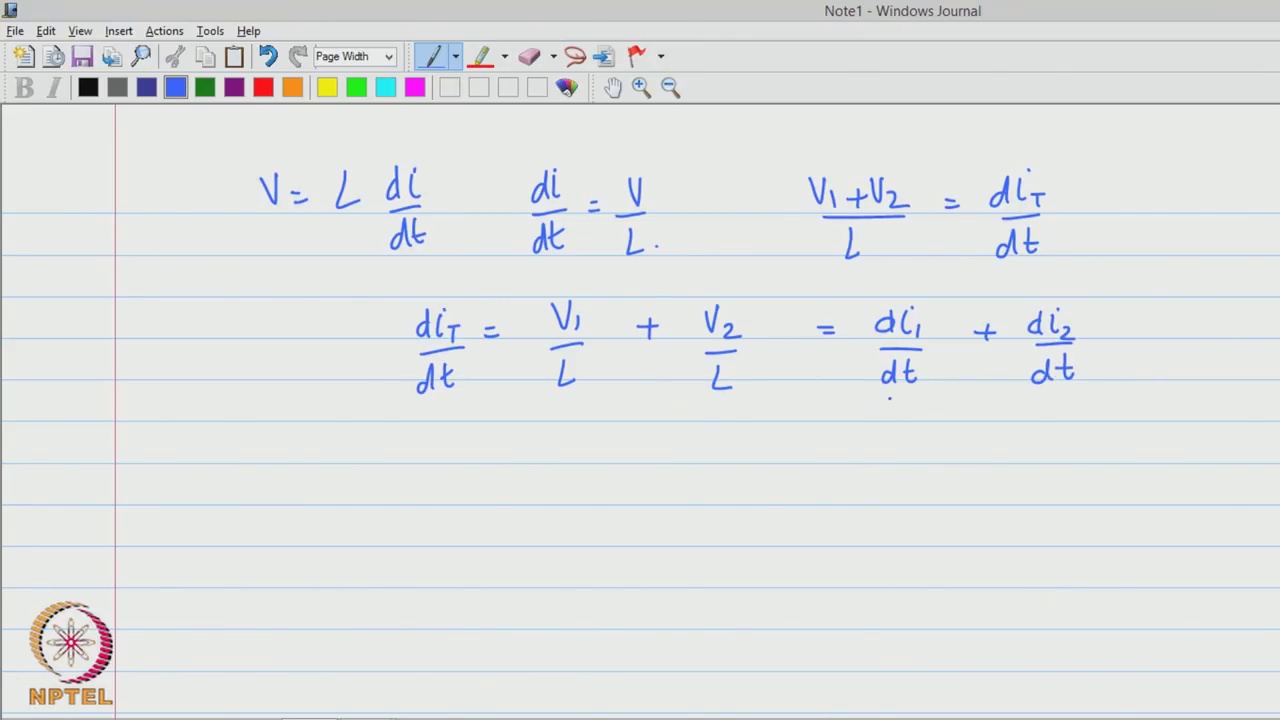 Note1 - Windows Journal
File Edit View Insert Actions Tools Help
Page Width
B I
V = L di/dt di/dt = V/L. V1+V2/L = diT/dt
diT/dt = V1/L + V2/L = di1/dt + di2/dt
NPTEL